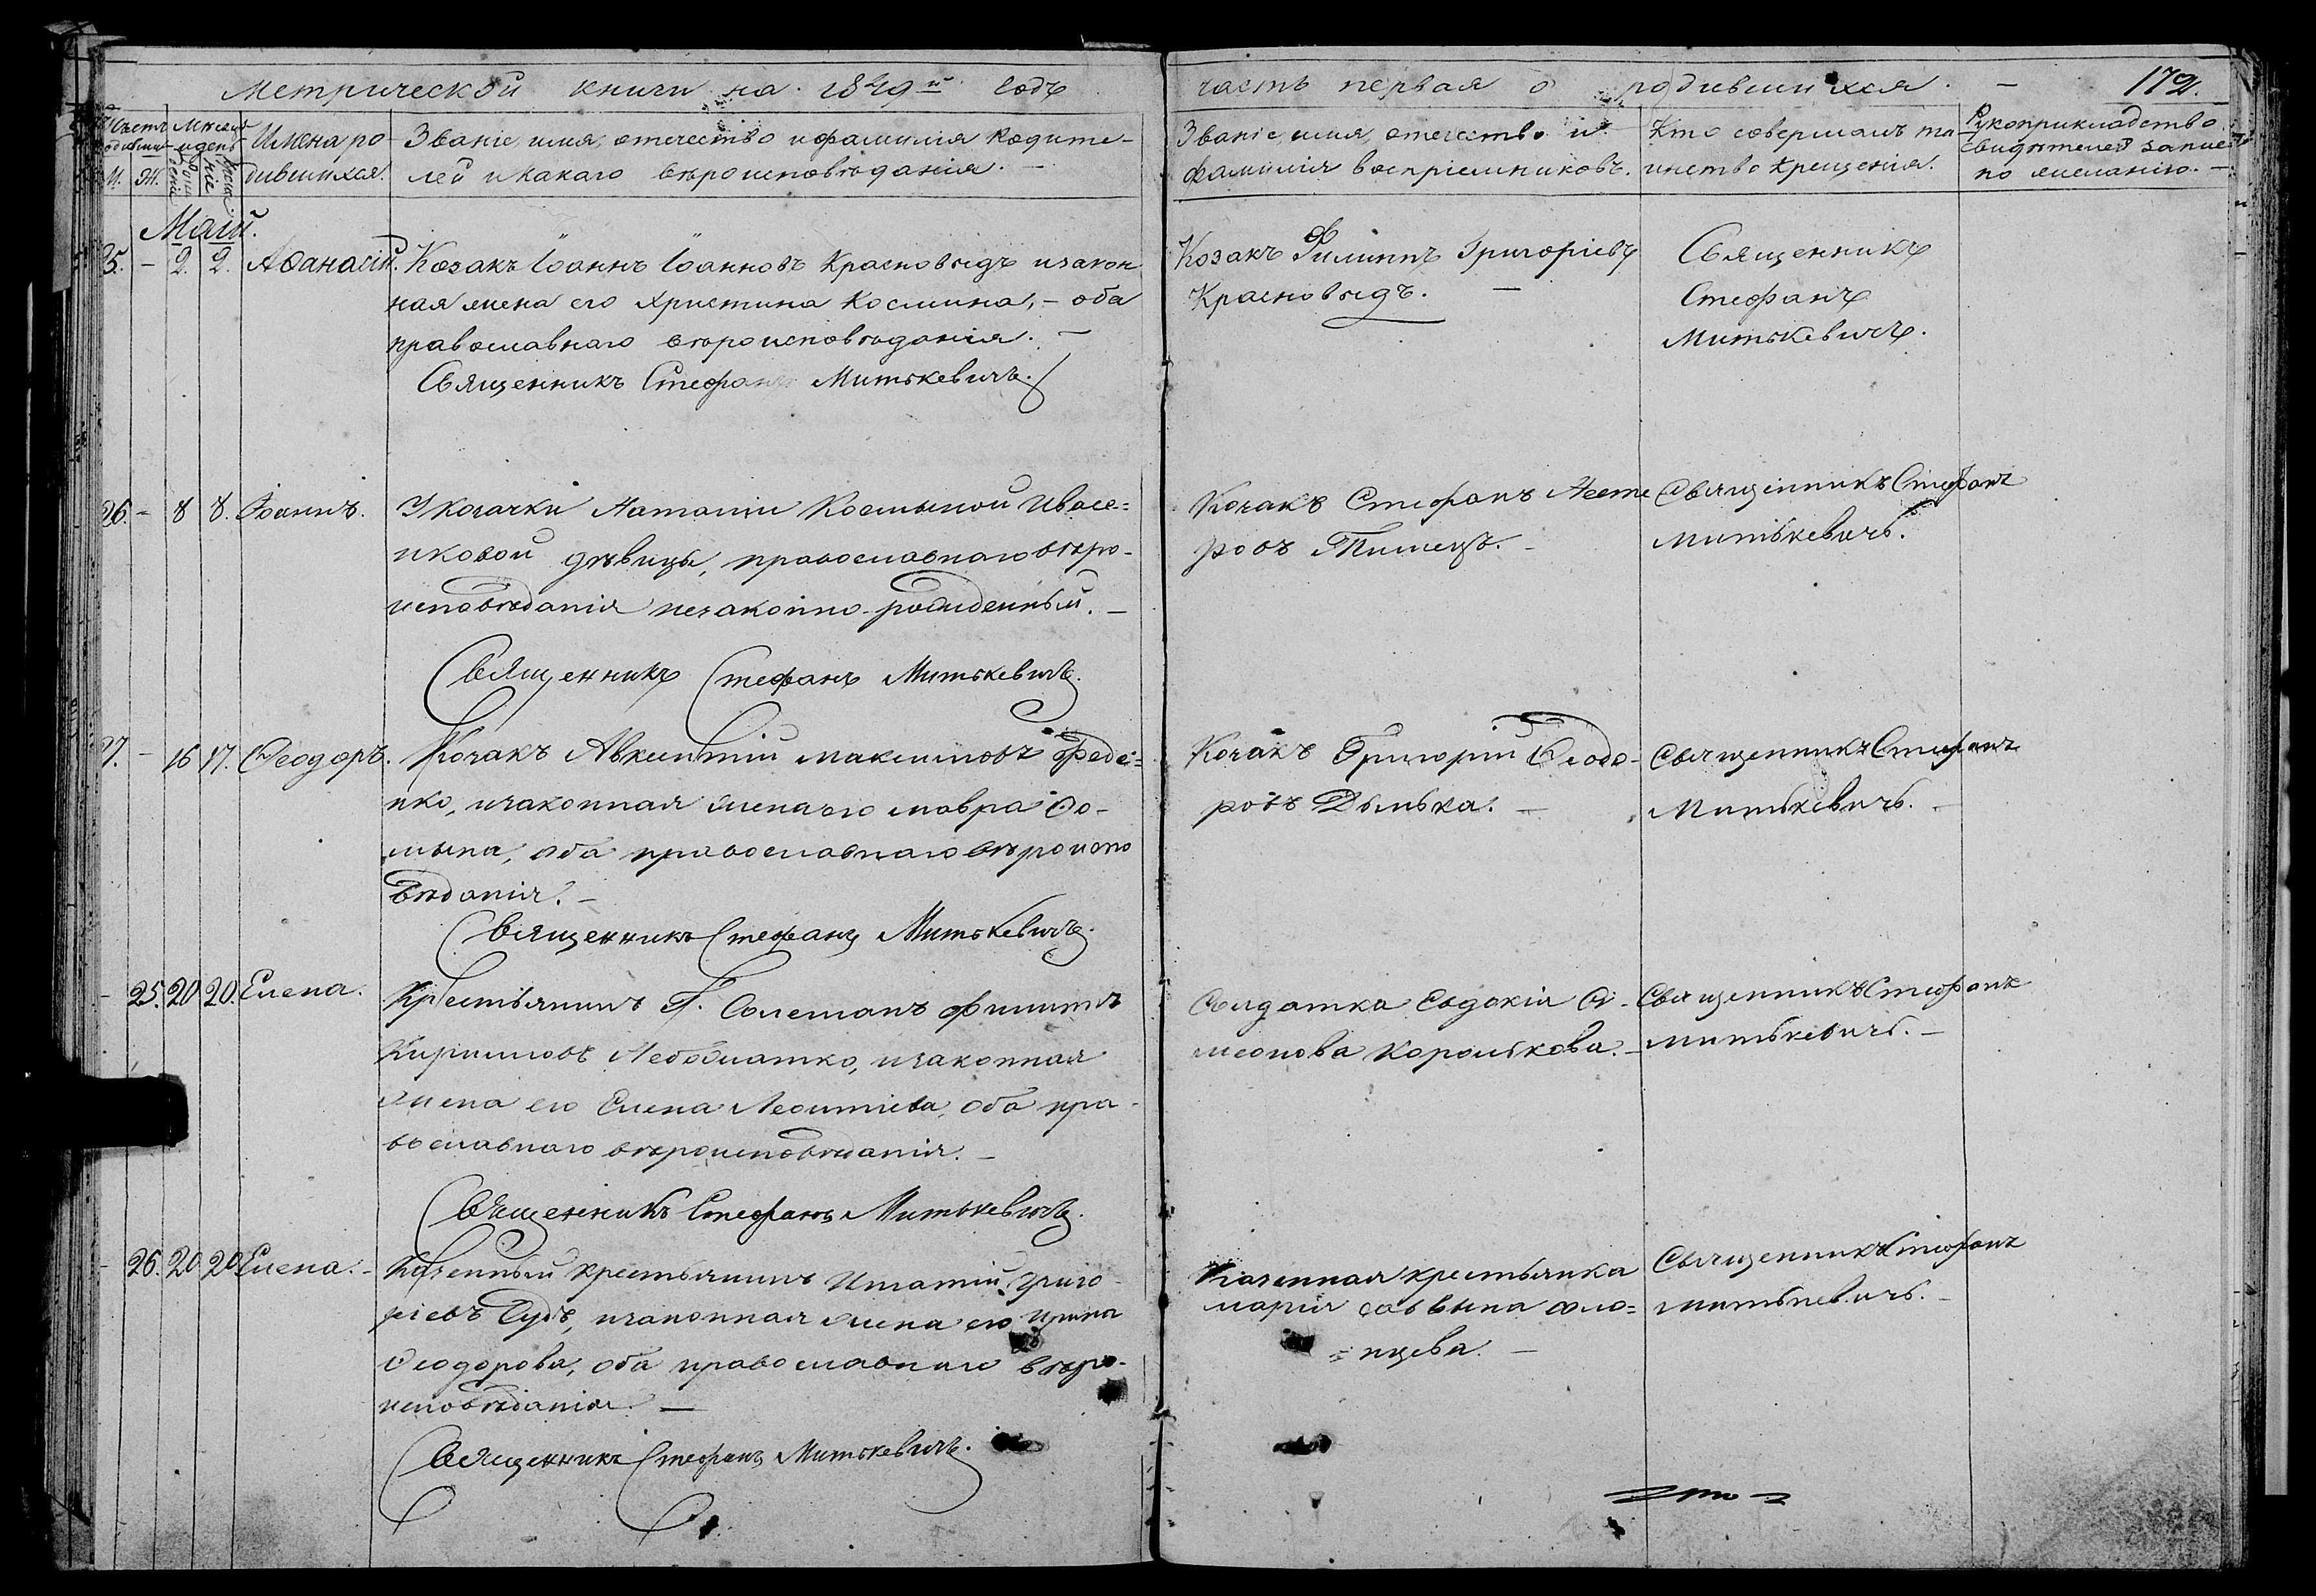 Метрической книги на 1849й годъ
часть первая о родившихся. 172.
Счетъ родившихся
М. Ж.
Месяцъ и день
Имена ро-
дившихся.
Званіе, имя, отечество и фамилія Родите-
лей и какаго вѣроисповѣданія.
Званіе, имя, отечество и
фамилія воспріемниковъ.
Кто совершалъ та
инство Крещенія.
Рукоприкладство
свидѣтелей записи
по желанію.
Май.
25. - 2. 2. Аѳанасій.
Козакъ Іоаннъ Іоанновъ Красновыдъ и закон
ная жена его Христина Космина, - оба
православнаго вѣроисповѣданія. -
Священникъ Стефанъ Митькевичъ.
Козакъ Филиппъ Григоріевъ
Красновыдъ. -
Священникъ
Стефанъ
Митькевичъ.
26. - 8 8. Іоаннъ.
У козачки Наталіи Косминой Ивасе=
нковой дѣвицы, православнаго вѣро-
исповѣданія незаконно-рожденный. -
Священникъ Стефанъ Митькевичъ.
Козакъ Стефанъ Несте
ровъ
Священникъ Стефанъ
Митькевичъ.
27. - 16 17. Ѳеодоръ.
Козакъ Авксентій Максимовъ Феде=
нко, и законная жена его Мавра Ѳо-
мина, оба православнаго вѣроиспо
вѣданія. -
Священникъ Стефанъ Митькевичъ.
Козакъ Григорій Ѳеодо-
ровъ
Священникъ Стефанъ
Митькевичъ. -
- 25. 20 20. Елена.
Крестьянинъ Г. Филиппъ
Кирилловъ и законная
жена его Елена Леонтіева, оба пра-
вославнаго вѣроисповѣданія. -
Священникъ Стефанъ Митькевичъ.
Солдатка Евдокія Си-
меонова Королькова. -
Священникъ Стефанъ
Митькевичъ. -
- 26. 20 20 Елена. -
Казенный крестьянинъ Игнатій Григо-
ріевъ и законная жена его Ирина
Ѳеодорова, оба православнаго вѣро-
исповѣданія. -
Священникъ Стефанъ Митькевичъ.
Казенная крестьянка
Марія Саввина
нцева. -
Священникъ Стефанъ
Митькевичъ. -